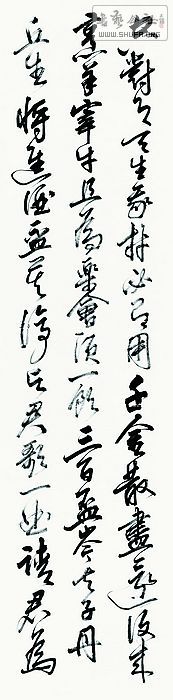 空對月天生我材必有用千金散盡還復來
烹羊宰牛且為樂會須一飲三百盃岑夫子丹
丘生將進酒盃莫停与君歌一曲請君為
WWW.SHUFA.ORG